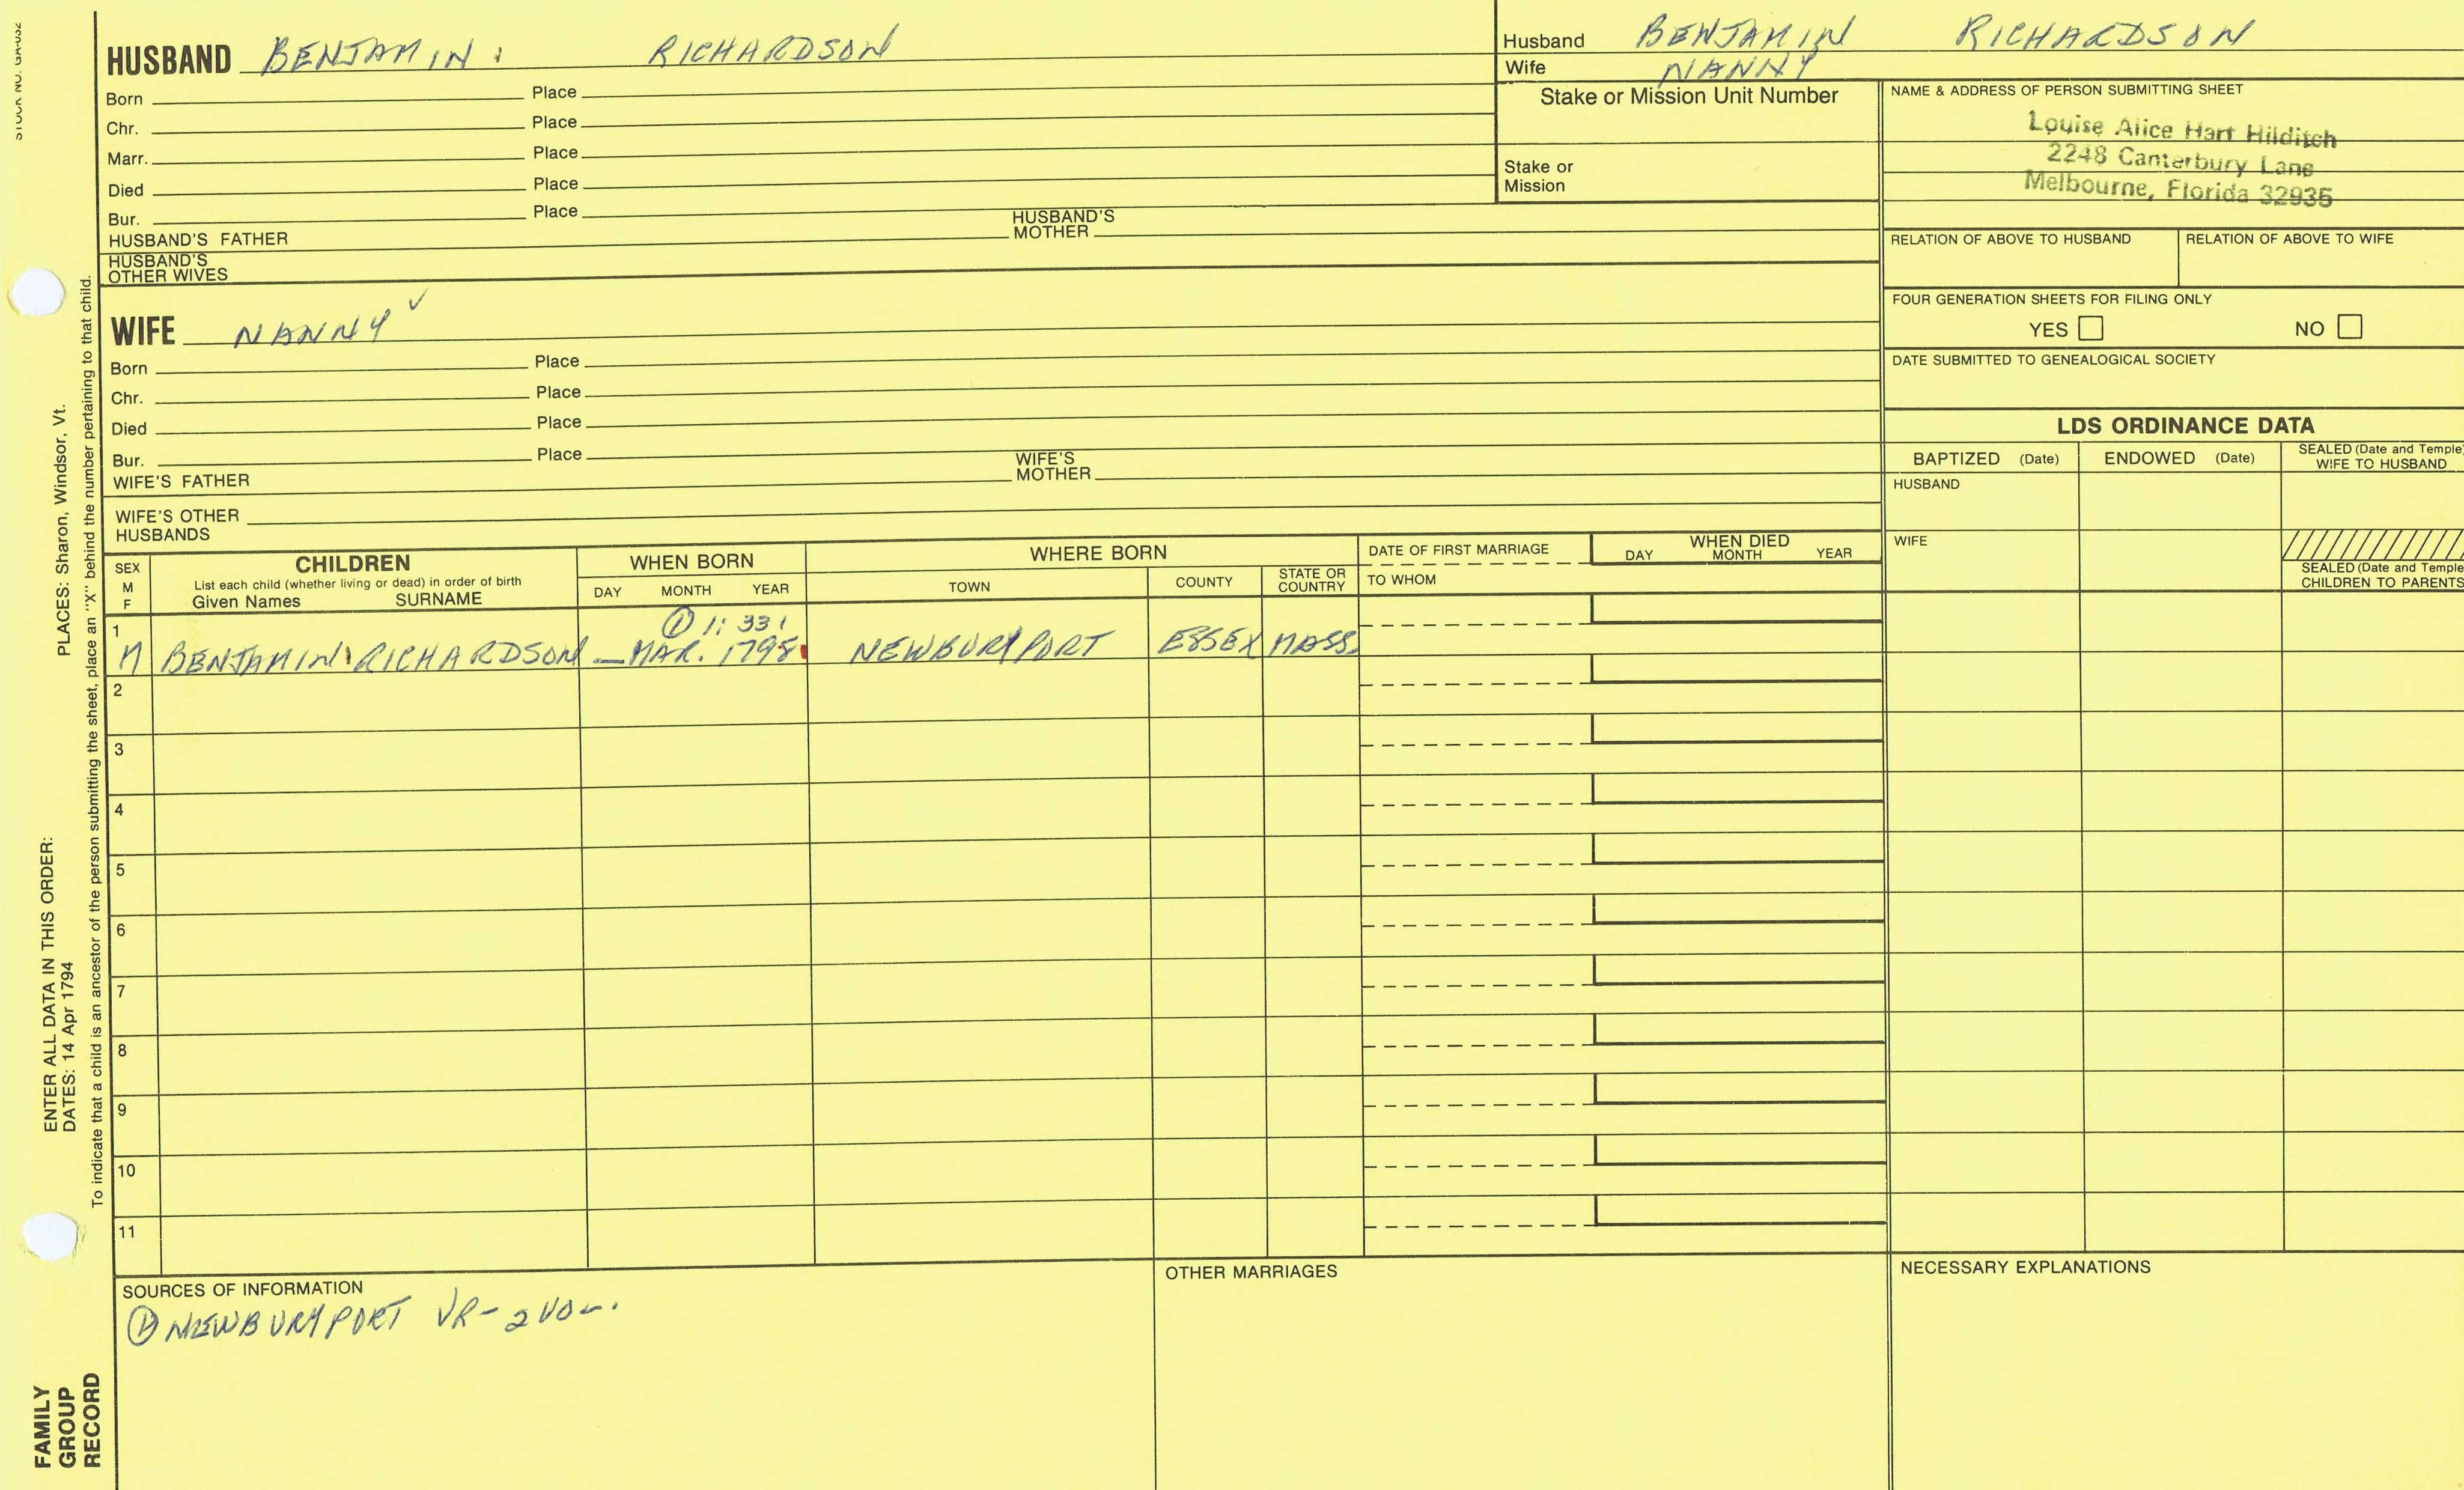 STOCK NO. GA-032
HUSBAND BENJAMIN RICHARDSON
Born Place
Chr. Place
Marr. Place
Died Place
Bur. Place
HUSBAND'S FATHER HUSBAND'S MOTHER
HUSBAND'S OTHER WIVES
WIFE NANNY
Born Place
Chr. Place
Died Place
Bur. Place
WIFE'S FATHER WIFE'S MOTHER
WIFE'S OTHER HUSBANDS
Husband BENJAMIN RICHARDSON
Wife NANNY
Stake or Mission Unit Number
Stake or Mission
NAME & ADDRESS OF PERSON SUBMITTING SHEET
Louise Alice Hart Hilditch
2248 Canterbury Lane
Melbourne, Florida 32935
RELATION OF ABOVE TO HUSBAND RELATION OF ABOVE TO WIFE
FOUR GENERATION SHEETS FOR FILING ONLY
YES NO
DATE SUBMITTED TO GENEALOGICAL SOCIETY
LDS ORDINANCE DATA
BAPTIZED (Date) ENDOWED (Date) SEALED (Date and Temple) WIFE TO HUSBAND
HUSBAND
WIFE
SEALED (Date and Temple
CHILDREN TO PARENTS
SEX M F
CHILDREN
List each child (whether living or dead) in order of birth
Given Names SURNAME
WHEN BORN
DAY MONTH YEAR
WHERE BORN
TOWN COUNTY STATE OR COUNTRY
DATE OF FIRST MARRIAGE
TO WHOM
WHEN DIED
DAY MONTH YEAR
① 1:331
1 M BENJAMIN RICHARDSON — MAR. 1798 NEWBURYPORT ESSEX MASS.
2
3
4
5
6
7
8
9
10
11
SOURCES OF INFORMATION
① NEWBURYPORT VR - 2 VOL.
OTHER MARRIAGES
NECESSARY EXPLANATIONS
ENTER ALL DATA IN THIS ORDER:
DATES: 14 Apr 1794
PLACES: Sharon, Windsor, Vt.
To indicate that a child is an ancestor of the person submitting the sheet, place an "X" behind the number pertaining to that child.
FAMILY
GROUP
RECORD